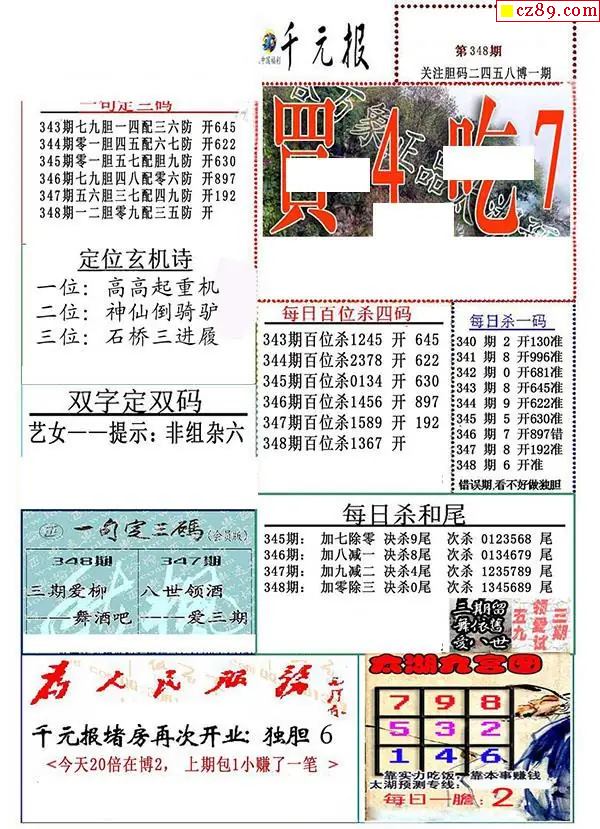 cz89.com
中国福利
千元报
第348期
关注胆码二四五八博一期
一句定三码
343期七九胆一四配三六防 开645
344期零一胆四五配六七防 开622
345期零一胆五七配胆九防 开630
346期七九胆四八配零六防 开897
347期五六胆三七配四九防 开192
348期一二胆零九配三五防 开
買4吃7
定位玄机诗
一位：高高起重机
二位：神仙倒骑驴
三位：石桥三进履
每日百位杀四码
343期百位杀1245 开 645
344期百位杀2378 开 622
345期百位杀0134 开 630
346期百位杀1456 开 897
347期百位杀1589 开 192
348期百位杀1367 开
每日杀一码
340 期 2 开130准
341 期 8 开996准
342 期 0 开681准
343 期 8 开645准
344 期 9 开622准
345 期 5 开630准
346 期 7 开897错
347 期 8 开192准
348 期 6 开准
错误期,看不好做独胆
双字定双码
艺女——提示：非组杂六
每日杀和尾
345期： 加七除零 决杀9尾 次杀 0123568 尾
346期： 加八减一 决杀8尾 次杀 0134679 尾
347期： 加九减二 决杀4尾 次杀 1235789 尾
348期： 加零除三 决杀0尾 次杀 1345689 尾
一句定三碼(会员版)
348期 347期
三期爱柳 八世领酒
——舞酒吧 ——爱三期
三期留
舞依舊
爱八世
为人民服务
千元报堵房再次开业：独胆 6
<今天20倍在博2， 上期包1小赚了一笔 >
太湖九宫图
7 9 8
5 3 2
1 4 6
靠实力吃饭，靠本事赚钱
太湖预测专线:
每日一胆: 2